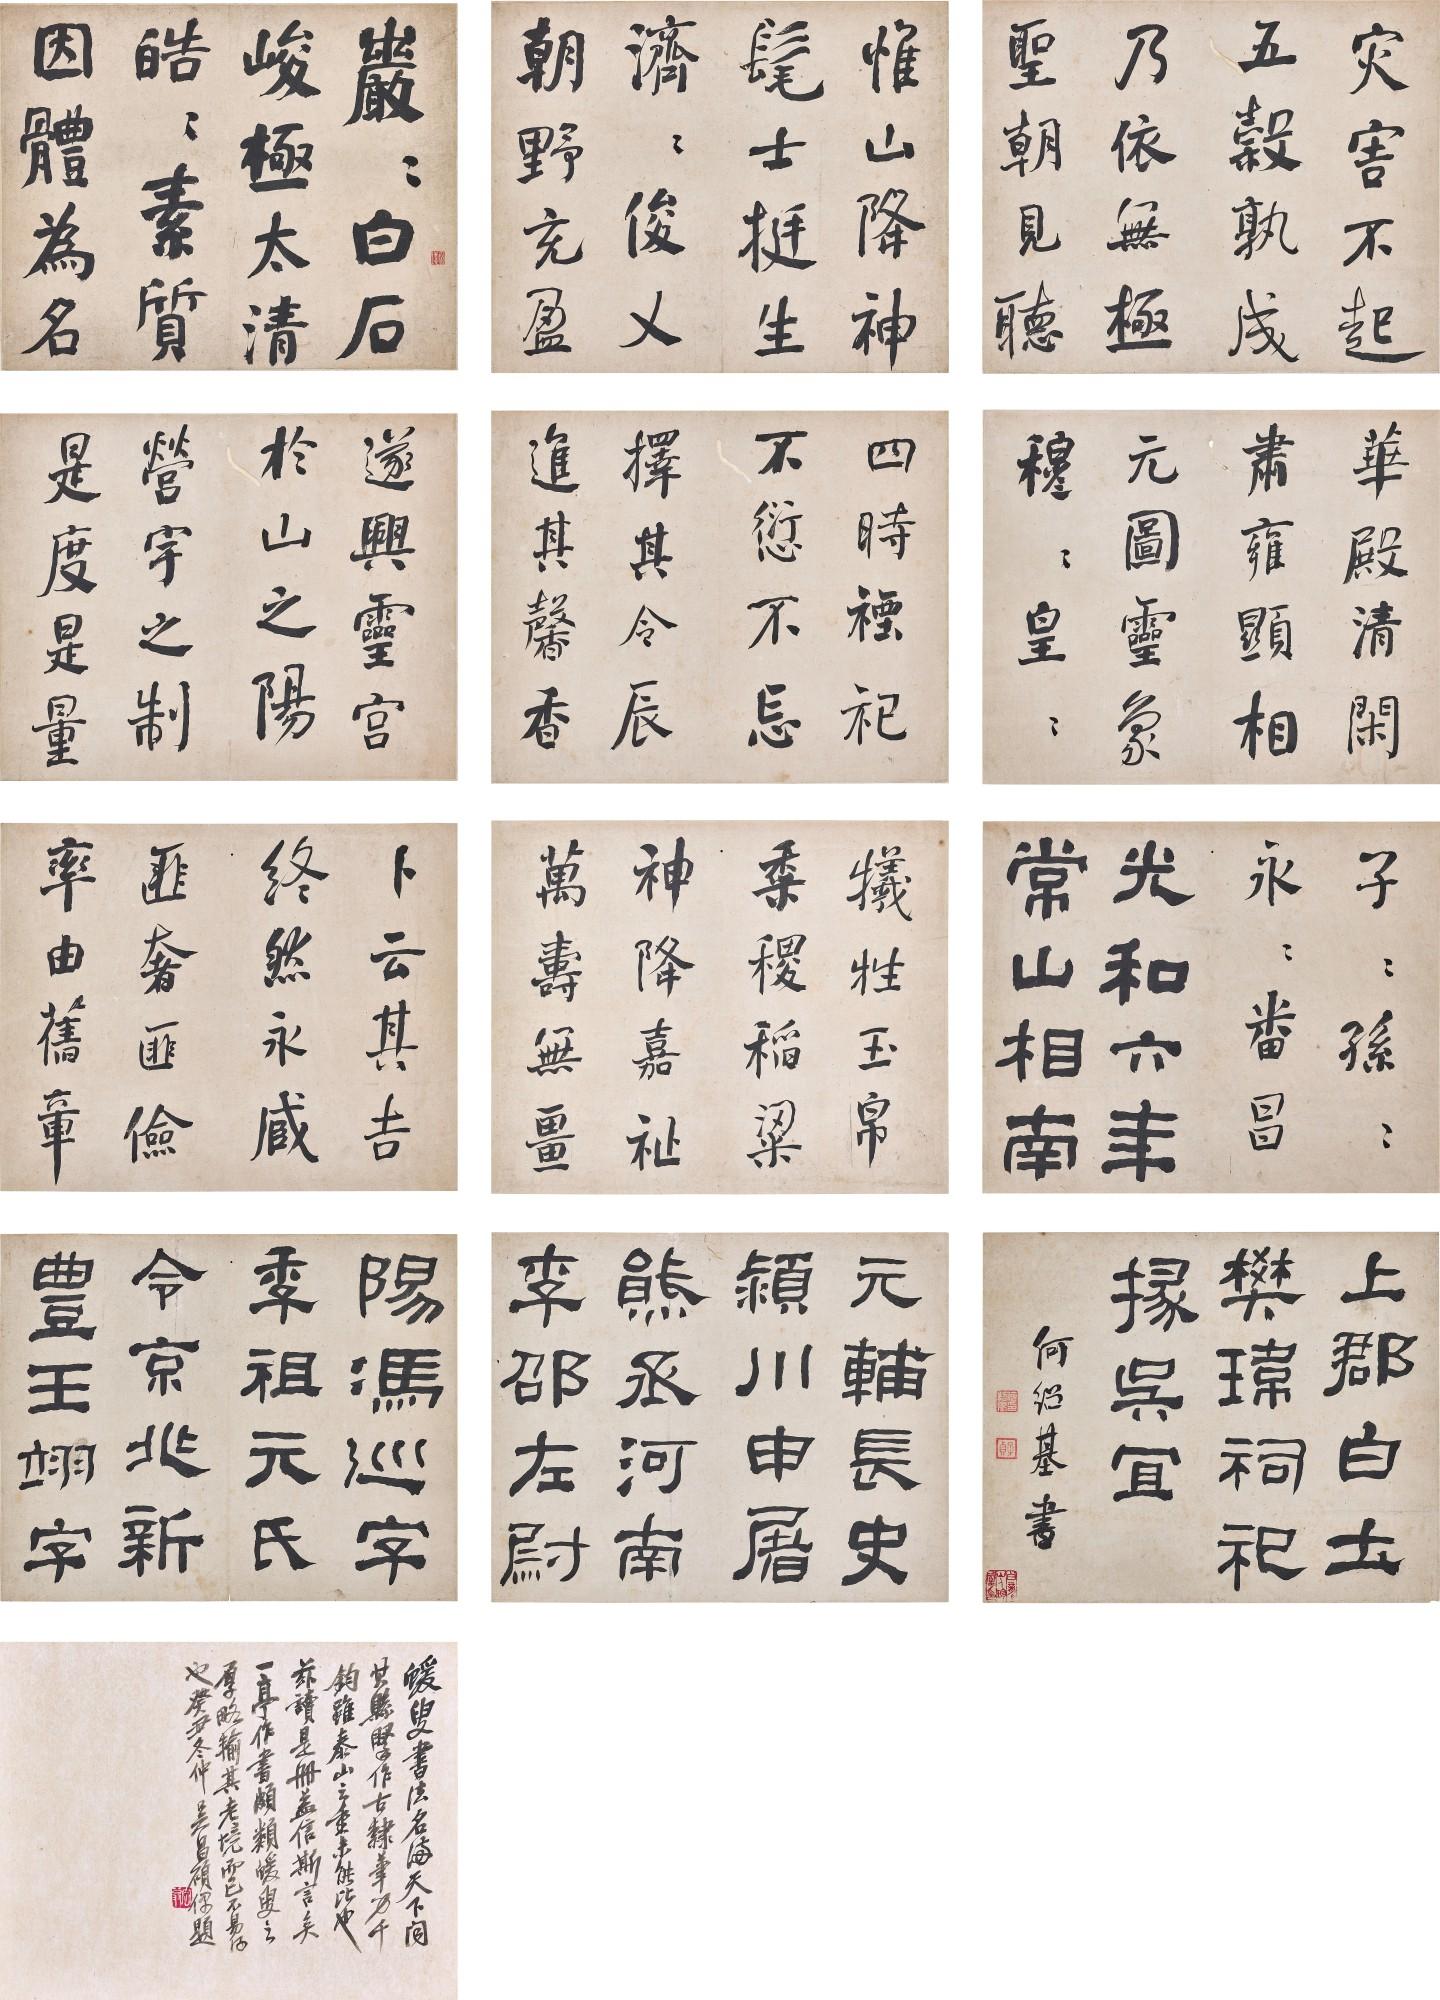 巖〻白石
峻極太清
皓〻素質
因體為名
惟山降神
髦士挺生
濟〻俊乂
朝野充盈
灾害不起
五穀孰成
乃依無極
聖朝見聽
遂興靈宮
於山之陽
營宇之制
是度是量
卜云其吉
終然永臧
匪奢匪儉
率由舊章
華殿清閑
肅雍顯相
元圖靈象
穆〻皇〻
四時禋祀
不愆不忘
擇其令辰
進其馨香
犧牲玉帛
黍稷稻粱
神降嘉祉
萬壽無畺
子〻孫〻
永〻番昌
光和六年
常山相南
陽馮巡字
季祖元氏
令京兆新
豐王翊字
元輔長史
潁川申屠
熊丞河南
李邵左尉
上郡白土
樊瑋祠祀
掾吳宜
何紹基書
蝯叟書法名滿天下間
其縣擥作古隸筆力千
鈞雖泰山之重未能比也
茲讀是冊益信斯言矣
一亭作書頗類蝯叟之
厚略輸其老境而已不易得
也癸丑冬仲吳昌碩
題